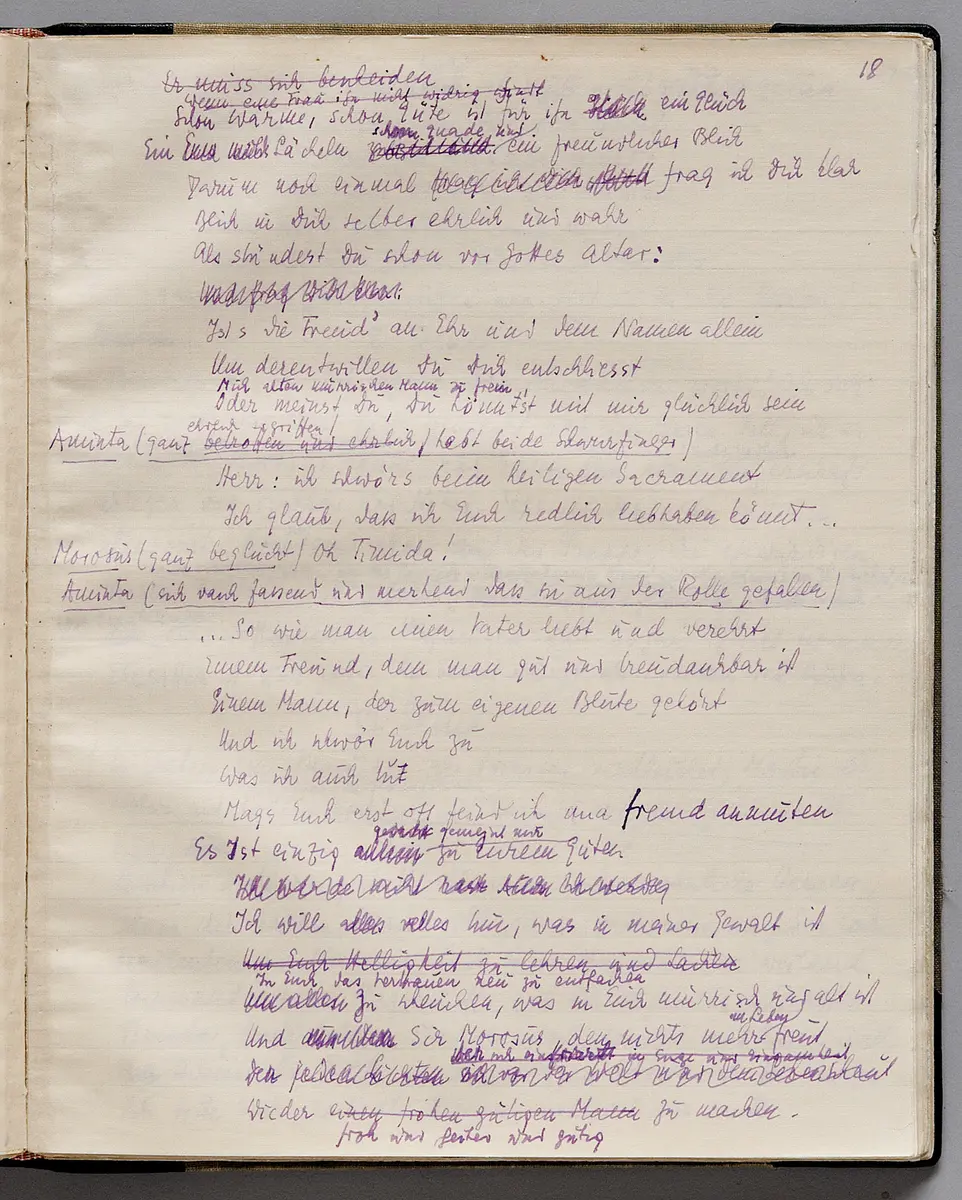 18
Er muss sich bescheiden
Wenn eine Frau ihn nicht widrig
Schon Wärme, schon Güte ist für ihn ein Glück
schon gnade und
Ein Lächeln ein freundlicher Blick
Darum noch einmal frag ich Dich klar
Blick in Dich selber ehrlich und wahr
Als stündest Du schon vor Gottes Altar:
Ists die Freud' an Ehr und dem Namen allein
Um derentwillen Du Dich entschliesst
Mich alten mürrischen Mann zu frein,
Oder meinst Du, Du könntst mit mir glücklich sein
ehrlich ergriffen
Aminta (ganz betroffen und ehrlich, hebt beide Schwurfinger)
Herr: ich schwörs beim heiligen Sacrament
Ich glaub, dass ich Euch redlich liebhaben könnt...
Morosus (ganz beglückt) Oh Timida!
Aminta (sich rasch fassend und merkend dass sie aus der Rolle gefallen)
... So wie man einen Vater liebt und verehrt
Einem Freund, dem man gut und dankbar ist
Einem Mann, der zum eigenen Blute gehört
Und ich schwör Euch zu
Was ich auch tu
Mags Euch erst oft feindlich und fremd anmuten
gemeint nur
Es Ist einzig allein zu Eurem Guten
Ich will alles tun, was in meiner Gewalt ist
Um Euch Helligkeit zu lehren und Lachen
In Euch das Vertrauen neu zu entfachen
Um allen zu scheuchen, was in Euch mürrisch und alt ist
am Leben
Und Sir Morosus, den nichts mehr freut
Wieder einen frohen gütigen Mann zu machen.
froh und heiter und gütig